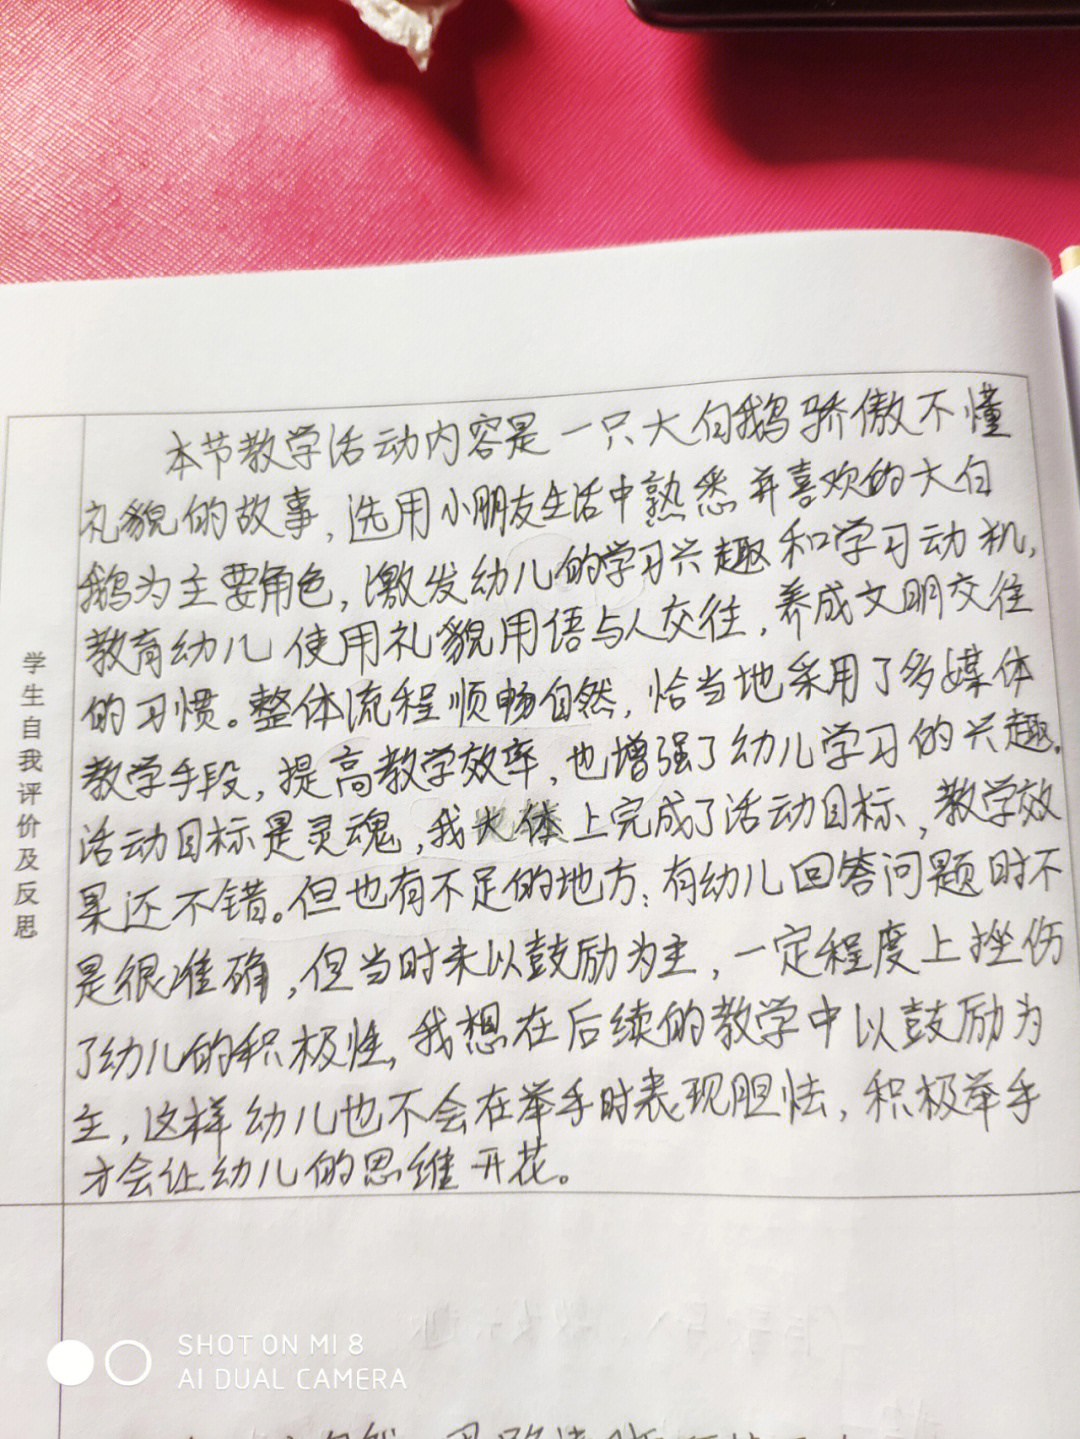 本节教学活动内容是一只大白鹅骄傲不懂
礼貌的故事，选用小朋友生活中熟悉并喜欢的大白
鹅为主要角色，激发幼儿的学习兴趣和学习动机，
教育幼儿使用礼貌用语与人交往，养成文明交往
的习惯。整体流程顺畅自然，恰当地采用了多媒体
教学手段，提高教学效率，也增强了幼儿学习的兴趣。
活动目标是灵魂，我大体上完成了活动目标，教学效
果还不错。但也有不足的地方：有幼儿回答问题时不
是很准确，但当时未以鼓励为主，一定程度上挫伤
了幼儿的积极性，我想在后续的教学中以鼓励为
主，这样幼儿也不会在举手时表现胆怯，积极举手
才会让幼儿的思维开花。
学生自我评价及反思
SHOT ON MI 8
AI DUAL CAMERA